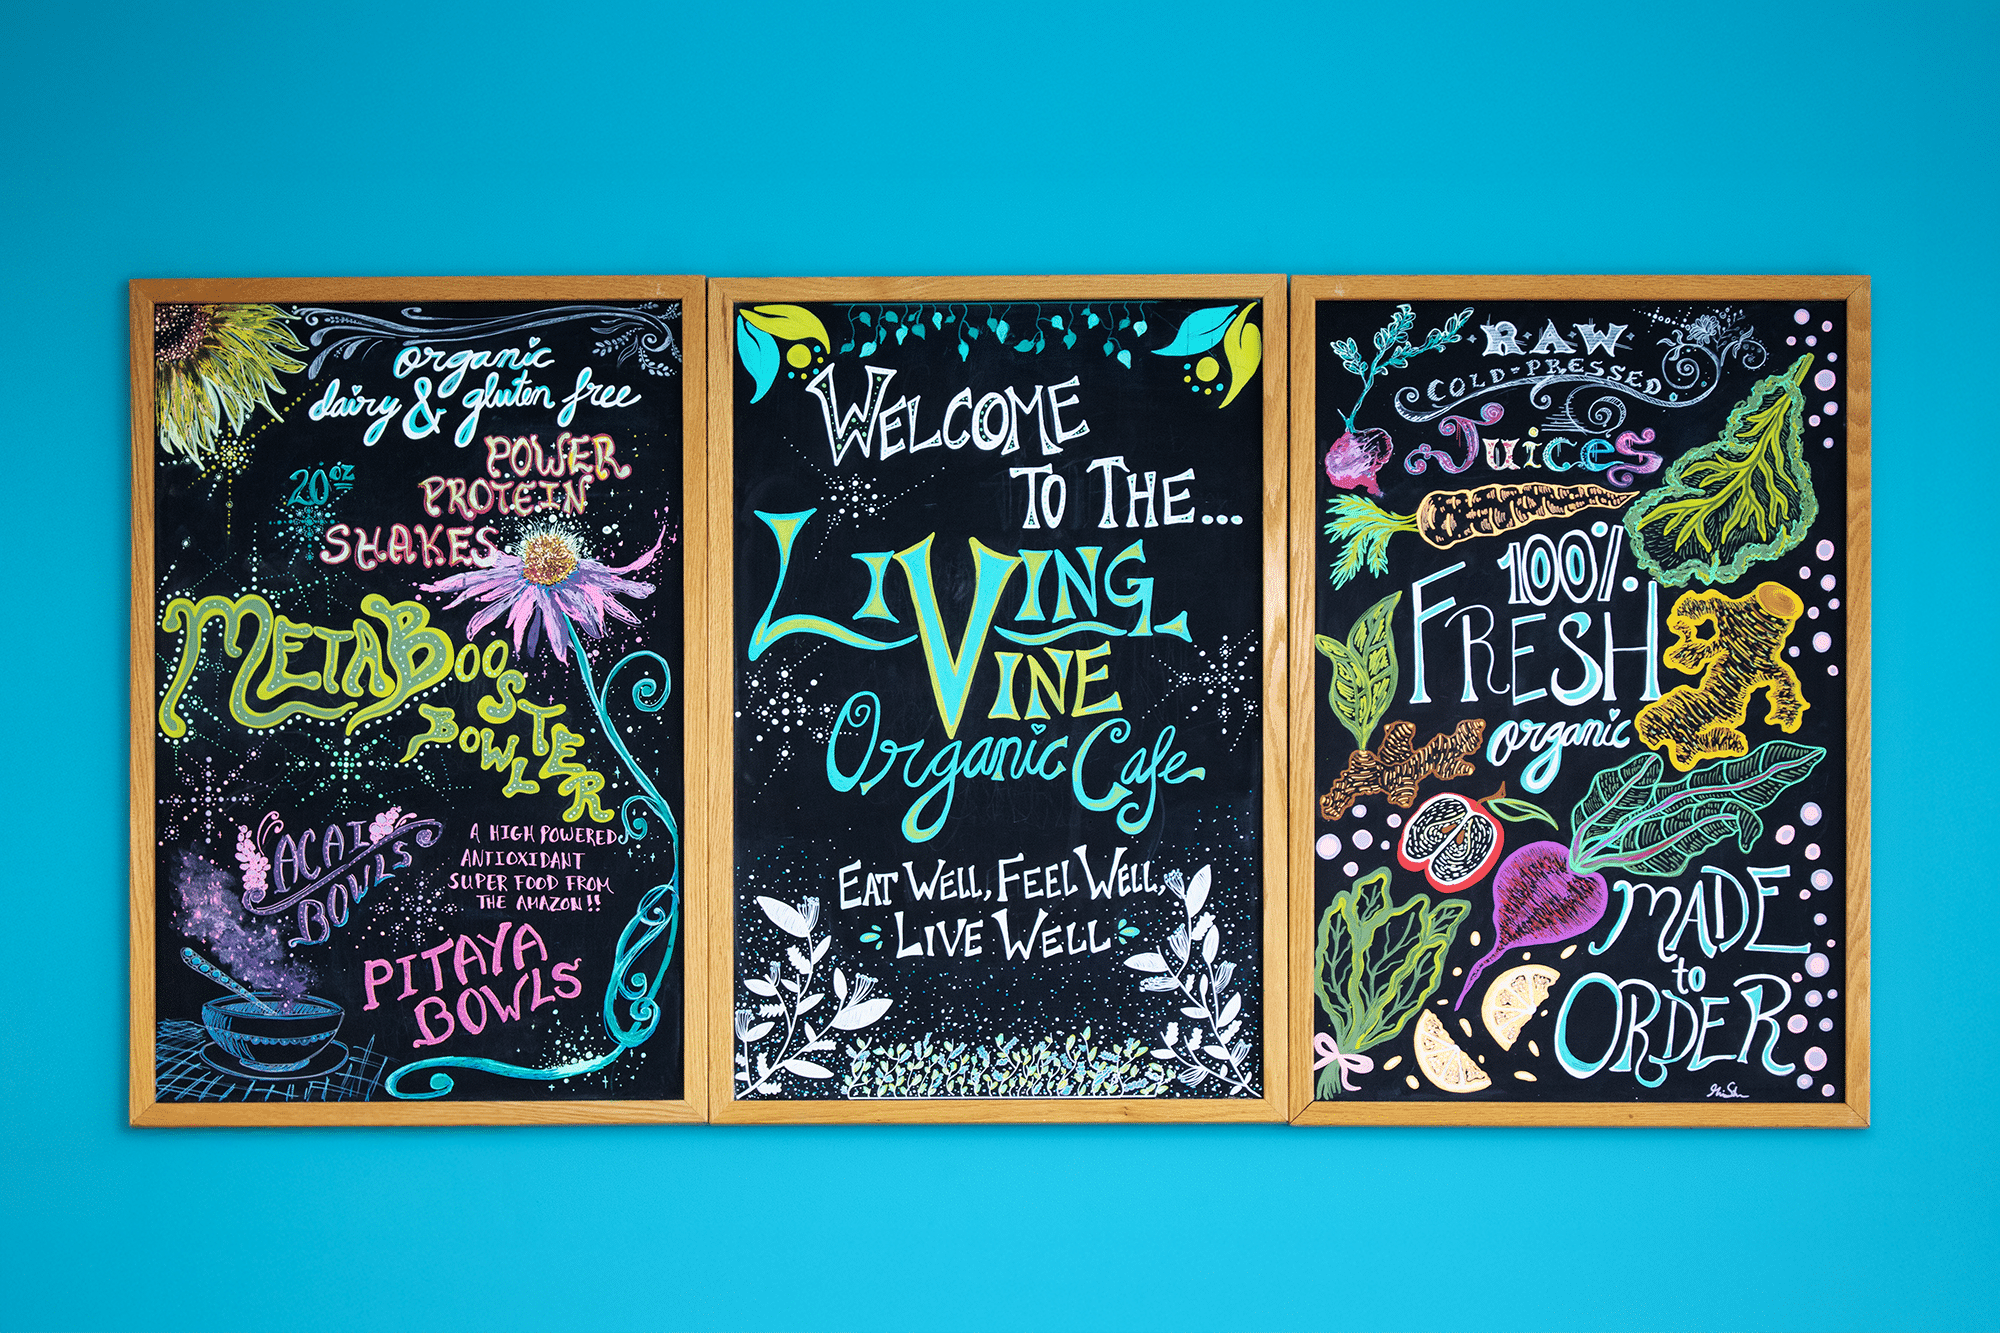 organic
dairy & gluten free
20oz
POWER
PROTEIN
SHAKES
METABOOSTER
BOWL
ACAI
BOWLS
A HIGH POWERED
ANTIOXIDANT
SUPER FOOD FROM
THE AMAZON!!
PITAYA
BOWLS
WELCOME
TO THE...
LIVING
VINE
Organic Cafe
EAT WELL, FEEL WELL,
LIVE WELL
RAW
COLD-PRESSED
Juices
100%
FRESH
organic
MADE
to
ORDER